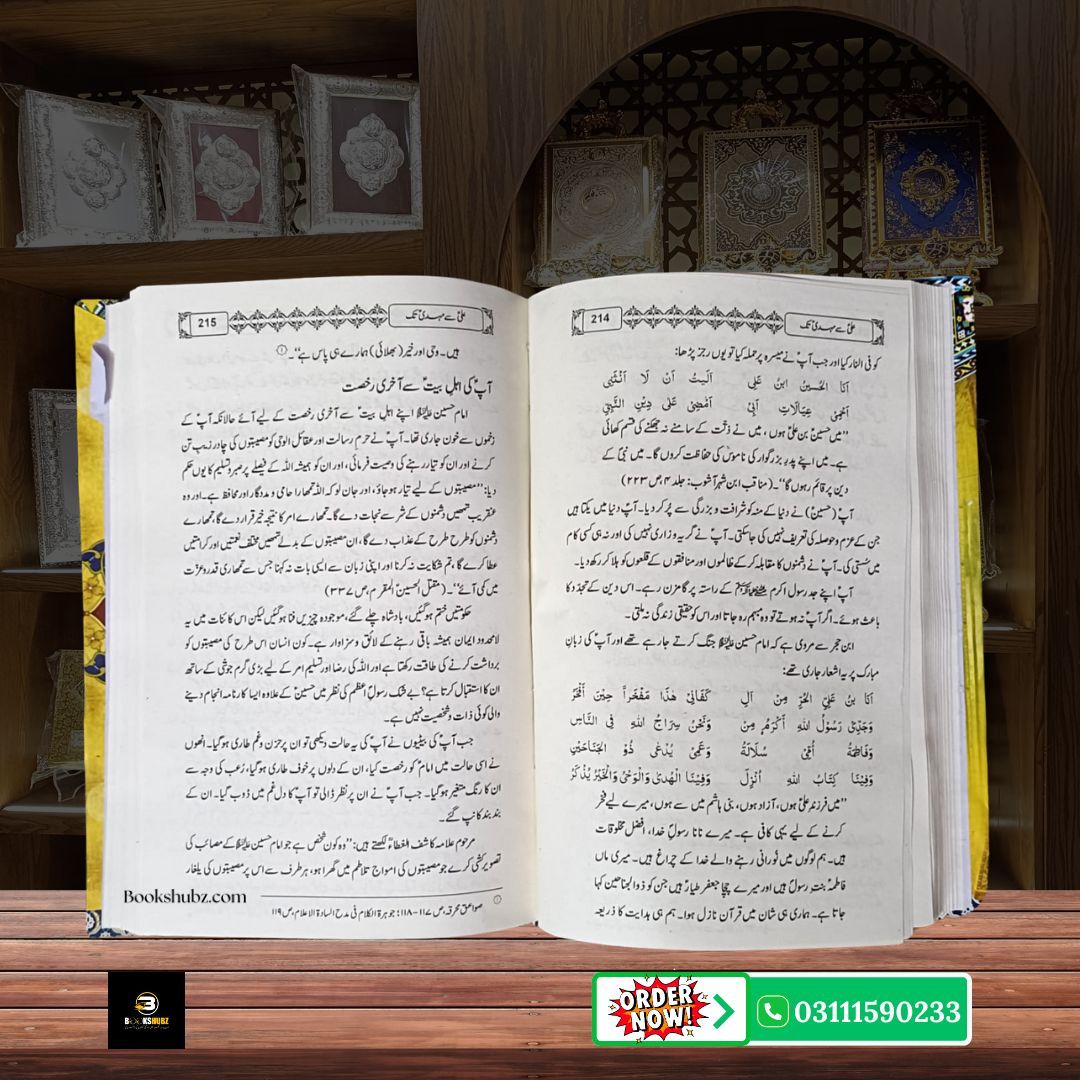 علیؑ سے مہدیؑ تک
214
کو فی النار کیا اور جب آپؑ نے میسرہ پر حملہ کیا تو یوں رجز پڑھا:
اَنَا الْحُسَیْنُ ابْنُ عَلِی اَلَیْتُ اَنْ لَا اَنْثَنِی
اَحْمِی عِیَالَاتِ اَبِیْ اَمْضِیْ عَلٰی دِیْنِ النَّبِیِّ
’’میں حسینؑ بن علیؑ ہوں، میں نے ذلّت کے سامنے نہ جھکنے کی قسم کھائی
ہے۔ میں اپنے پدر بزرگوار کی ناموس کی حفاظت کروں گا۔ میں نبیؐ کے
دین پر قائم رہوں گا‘‘۔ (مناقب ابن شہر آشوب: جلد ۴، ص ۲۲۳)
آپؑ (حسینؑ) نے دنیا کے منہ کو شرافت و بزرگی سے پُر کر دیا۔ آپؑ دنیا میں یکتا ہیں
جن کے عزم و حوصلہ کی تعریف نہیں کی جا سکتی۔ آپؑ نے گریہ و زاری نہیں کی اور نہ ہی کسی کام
میں سُستی کی۔ آپؑ نے دشمنوں کا مقابلہ کر کے ظالموں اور منافقوں کے قلعوں کو ہلا کر رکھ دیا۔
آپؑ اپنے جد رسول اکرم ﷺ کے راستہ پر گامزن رہے۔ اس دین کے تجدّد کا
باعث ہوئے۔ اگر آپؑ نہ ہوتے تو وہ مبہم رہ جاتا اور اس کو حقیقی زندگی نہ ملتی۔
ابن حجر سے مروی ہے کہ امام حسین علیہ السلام جنگ کرتے جا رہے تھے اور آپؑ کی زبانِ
مبارک پر یہ اشعار جاری تھے:
اَنَا بْنُ عَلِیِّ الْحُرِّ مِنْ آلِ کَفَانِیْ ھٰذَا مَفْخَراً حِیْنَ اَفْخَرُ
وَجَدِّیْ رَسُوْلُ اللهِ اَکْرَمُ مِنْ وَنَحْنُ سِرَاجُ اللهِ فِی النَّاسِ
وَفَاطِمَۃُ اُمِّیْ سُلَالَۃُ وَعَمِّیْ یُدْعٰی ذُو الْجَنَاحَیْنِ
وَفِیْنَا کِتَابُ اللهِ اُنْزِلَ وَفِیْنَا الْھُدٰی وَالْوَحْیُ وَالْخَیْرُ یُذْکَرُ
’’میں فرزند علیؑ ہوں، آزاد ہوں، بنی ہاشم میں سے ہوں، میرے لیے فخر
کرنے کے لیے یہی کافی ہے۔ میرے نانا رسولِ خدا، افضل مخلوقات
ہیں۔ ہم لوگوں میں نُورانی رہنے والے خدا کے چراغ ہیں۔ میری ماں
فاطمہؑ بنتِ رسولؐ ہیں اور میرے چچا جعفر طیارؑ ہیں جن کو ذوالجناحین کہا
جاتا ہے۔ ہماری ہی شان میں قرآن نازل ہوا۔ ہم ہی ہدایت کا ذریعہ
علیؑ سے مہدیؑ تک
215
ہیں۔ وحی اور خیر (بھلائی) ہمارے ہی پاس ہے‘‘۔ ①
آپؑ کی اہلِ بیتؑ سے آخری رخصت
امام حسین علیہ السلام اپنے اہلِ بیتؑ سے آخری رخصت کے لیے آئے حالانکہ آپؑ کے
زخموں سے خون جاری تھا۔ آپؑ نے حرمِ رسالت اور عقائل الوحی کو مصیبتوں کی چادر زیبِ تن
کرنے اور ان کو تیار رہنے کی وصیت فرمائی، اور ان کو ہمیشہ اللہ کے فیصلے پر صبر و تسلیم کا یوں حکم
دیا: ’’مصیبتوں کے لیے تیار ہو جاؤ، اور جان لو کہ اللہ تمھارا حامی و مددگار اور محافظ ہے۔ اور وہ
عنقریب تمھیں دشمنوں کے شر سے نجات دے گا۔ تمھارے امر کا نتیجہ خیر قرار دے گا، تمھارے
دشمنوں کو طرح طرح کے عذاب دے گا، ان مصیبتوں کے بدلے تمھیں مختلف نعمتیں اور کرامتیں
عطا کرے گا، تم شکایت نہ کرنا اور اپنی زبان سے ایسی بات نہ کہنا جس سے تمھاری قدر و عزت
میں کمی آئے‘‘۔ (مقتل الحسینؑ المقرم، ص ۳۳۷)
حکومتیں ختم ہو گئیں، بادشاہ چلے گئے، موجودہ چیزیں فنا ہو گئیں لیکن اس کائنات میں یہ
لامحدود ایمان ہمیشہ باقی رہنے کے لائق و سزاوار ہے۔ کون انسان اس طرح کی مصیبتوں کو
برداشت کرنے کی طاقت رکھتا ہے اور اللہ کی رضا اور تسلیم امر کے لیے بڑی گرم جوشی کے ساتھ
ان کا استقبال کرتا ہے؟ بے شک رسولِ اعظمؐ کی نظر میں حسینؑ کے علاوہ ایسا کارنامہ انجام دینے
والی کوئی ذات و شخصیت نہیں ہے۔
جب آپؑ کی بیٹیوں نے آپؑ کی یہ حالت دیکھی تو ان پر حزن و غم طاری ہو گیا۔ انھوں
نے اسی حالت میں امامؑ کو رخصت کیا، ان کے دلوں پر خوف طاری ہو گیا، رُعب کی وجہ سے
ان کا رنگ متغیر ہو گیا۔ جب آپؑ نے ان پر نظر ڈالی تو آپؑ کا دل غم میں ڈوب گیا۔ ان کے
بند بند کانپ گئے۔
مرحوم علامہ کاشف الغطاءؒ لکھتے ہیں: ’’وہ کون شخص ہے جو امام حسین علیہ السلام کے مصائب کی
تصویر کشی کرے جو مصیبتوں کی امواج تلاطم میں گھرا ہو، ہر طرف سے اس پر مصیبتوں کی یلغار
① صواعق محرقہ، ص ۱۱۷–۱۱۸؛ جوہرۃ الکلام فی مدح السادۃ الاعلام، ص ۱۱۹
Bookshubz.com
BOOKSHUBZ
ORDER NOW!
03111590233